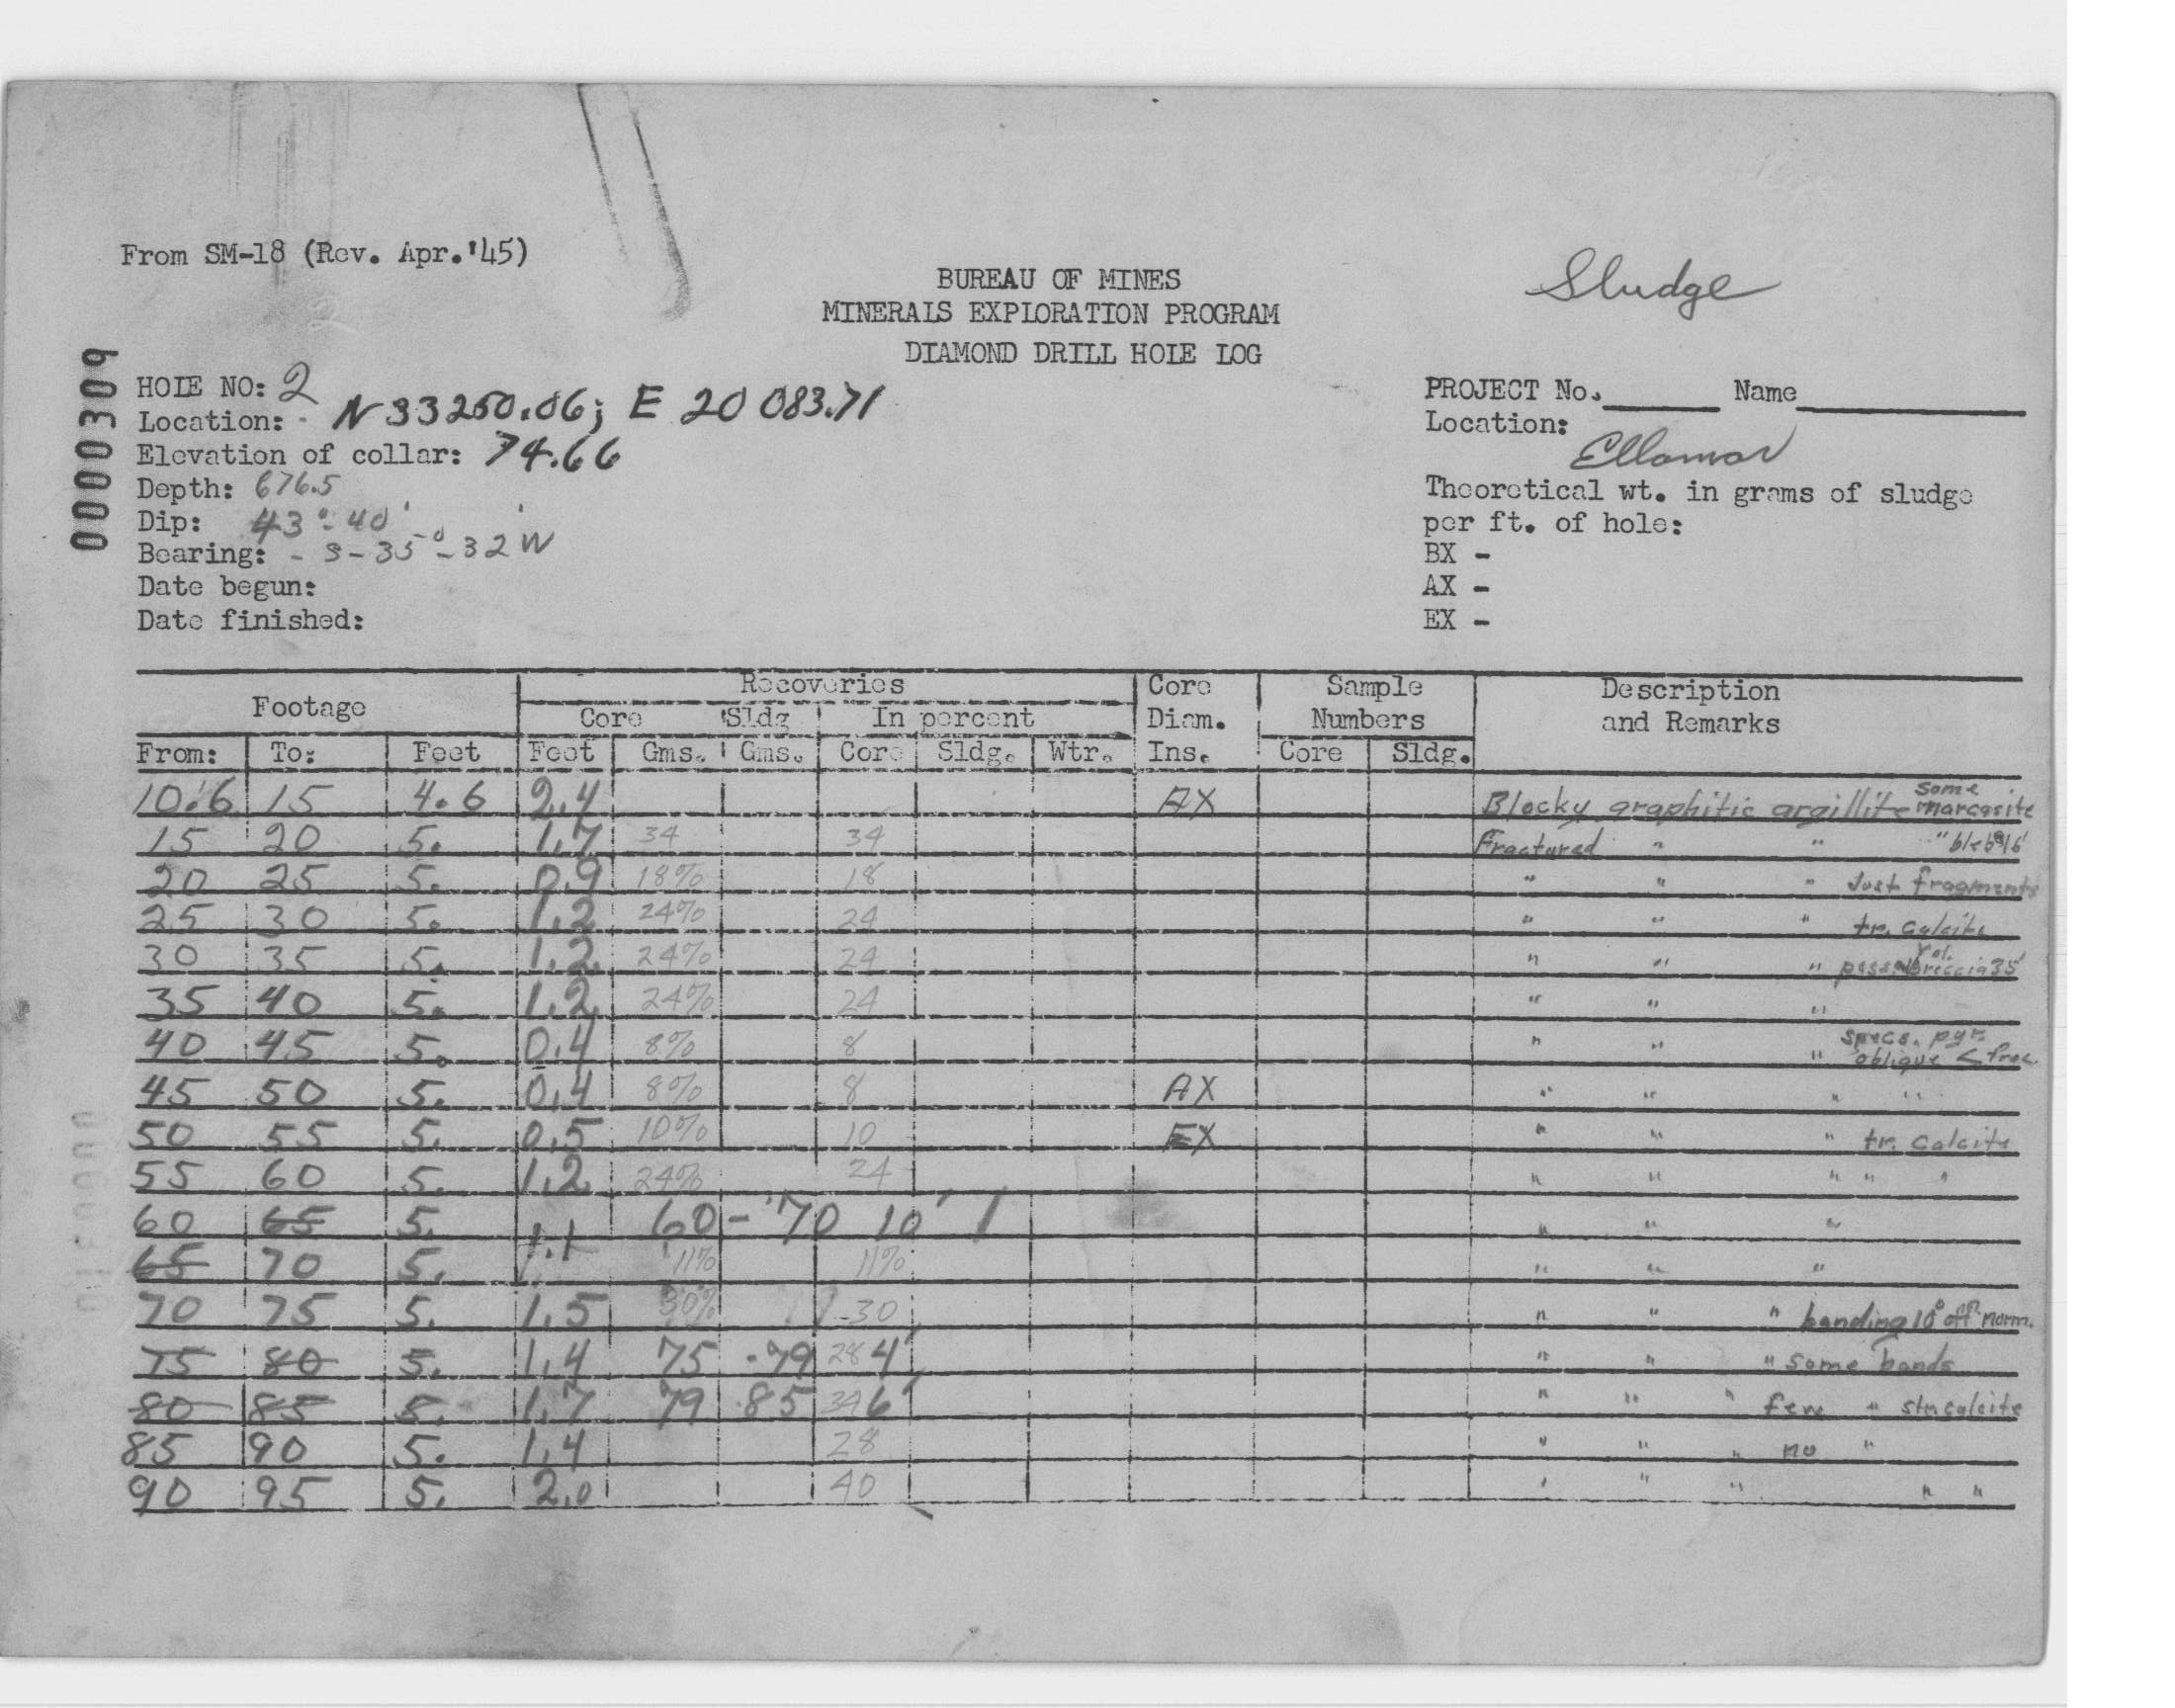 From SM-18 (Rev. Apr.'45)
Sludge
BUREAU OF MINES
MINERALS EXPLORATION PROGRAM
DIAMOND DRILL HOLE LOG
0000309
HOLE NO: 2
Location: N 33250.06; E 20 083.71
Elevation of collar: 74.66
Depth: 676.5
Dip: 43°-40'
Bearing: - S-35°-32'W
Date begun:
Date finished:
PROJECT No. Name
Location:
Ellamar
Theoretical wt. in grams of sludge
per ft. of hole:
BX -
AX -
EX -
Footage Recoveries Core Diam. Ins. Sample Numbers Description and Remarks
Core Sldg In percent
From: To: Feet Feet Gms. Gms. Core Sldg. Wtr. Core Sldg.
10.6 15 4.6 2.4 AX Blocky graphitic argillite some marcasite
15 20 5. 1.7 34 34 Fractured " " " bleb@16'
20 25 5. 0.9 18% 18 " " " Just fragments
25 30 5. 1.2 24% 24 " " " tr. calcite
30 35 5. 1.2 24% 24 " " " breccia 35'
35 40 5. 1.2 24% 24 " " "
40 45 5. 0.4 8% 8 " " " specs. pyr. oblique < frac.
45 50 5. 0.4 8% 8 AX " " " "
50 55 5. 0.5 10% 10 EX " " " tr. calcite
55 60 5. 1.2 24% 24 " " " " "
60 65 5. 1.1 60-70 10' " " "
65 70 5. 11% 11% " " "
70 75 5. 1.5 30% 30 " " " banding 10° off norm.
75 80 5. 1.4 75 .79 28 4' " " " some bands
80 85 5. 1.7 79 .85 34 6' " " " few " calcite
85 90 5. 1.4 28 " " " no "
90 95 5. 2.0 40 " " " " "